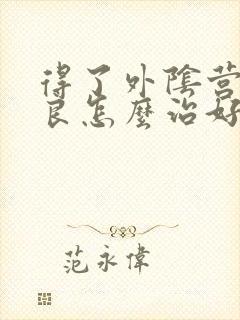 得了外陰营
良怎麼治好
范永偉